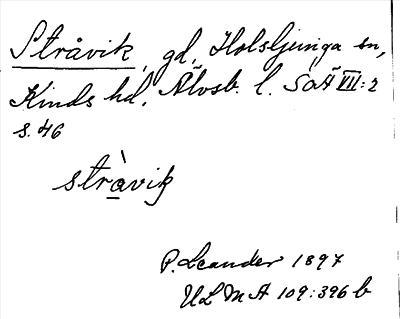 Stråvik, gd, Holsljunga sn,
Kinds hd. Älvsb. l. SOÄ VII:2
s. 46
stràvik
P. Leander 1897
ULMA 109:396 b